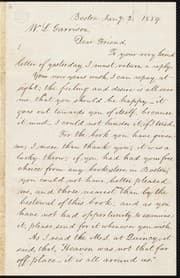 Boston Jan'y. 2. 1889.
W. L. Garrison
Dear Friend,
To your very kind
letter of yesterday I must return a reply.
Your new year wish I can repay at
sight: the feeling and desire is all over
me, that you should be happy — it
goes out towards you of itself, because
it must. I could not hinder it if I tried.
For the book you have given
me, I more than thank you; it was a
lucky throw; if you had had your free
choice from any bookseller in Boston,
you could not have better pleased
me, and those nearest than by the
bestowal of this book, and as you
have not had opportunity to examine
it, please send for it whenever you wish.
As I and the rest of
said, that, "Heaven was not that far
off place, it is all around us."